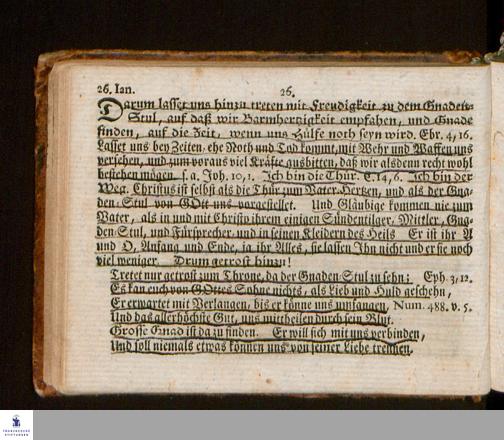 26. Ian.
26.
Darum lasset uns hinzu treten mit Freudigkeit zu dem Gnaden-
Stul, auf daß wir Barmhertzigkeit empfahen, und Gnade
finden, auf die Zeit, wenn uns Hülfe noth seyn wird. Ebr. 4, 16.
Lasset uns bey Zeiten, ehe Noth und Tod kommt, mit Wehr und Waffen uns
versehen, und zum voraus viel Kräfte ausbitten, daß wir alsdenn recht wohl
bestehen mögen. s. a. Joh. 10, 1. Ich bin die Thür. C. 14, 6. Ich bin der
Weg. Christus ist selbst als die Thür zum Vater-Hertzen, und als der Gna-
den-Stul von GOtt uns vorgestellet. Und Gläubige kommen nie zum
Vater, als in und mit Christo ihrem einigen Sündentilger, Mittler, Gna-
den-Stul, und Fürsprecher, und in seinen Kleidern des Heils Er ist ihr A
und O, Anfang und Ende, ja ihr Alles, sie lassen Ihn nicht und er sie noch
viel weniger. Drum getrost hinzu!
Tretet nur getrost zum Throne, da der Gnaden-Stul zu sehn: Eph. 3, 12.
Es kan euch von GOttes Sohne nichts, als Lieb und Huld geschehn,
Er erwartet mit Verlangen, bis er könne uns umfangen, Num. 488. v. 5.
Und das allerhöchste Gut, uns mittheilen durch sein Blut.
Grosse Gnad ist da zu finden. Er will sich mit uns verbinden,
Und soll niemals etwas können uns von seiner Liebe trennen.